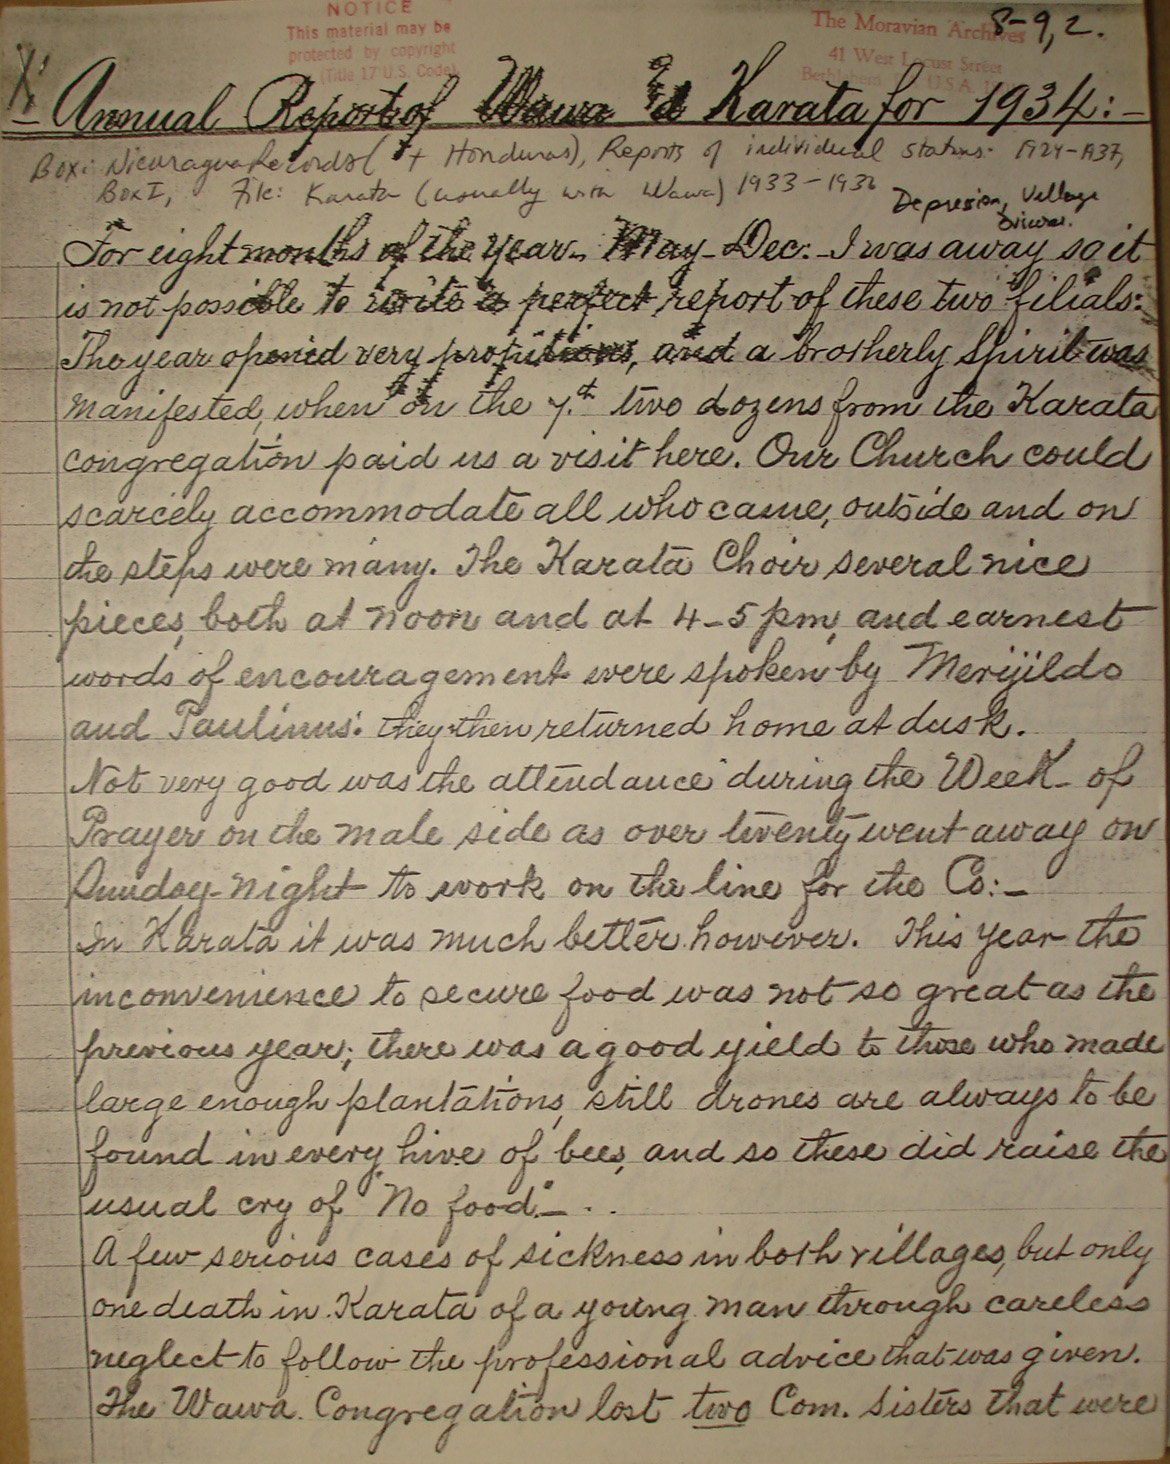 NOTICE
This material may be
protected by copyright
(Title 17 U.S. Code)
The Moravian Archives
41 West Locust Street
Bethlehem U.S.A.
8-9,2.
X
Annual Report of Wawa & Karata for 1934:-
Box: Nicaragua Records ( + Honduras), Reports of individual stations. 1924-1937,
Box I, File: Karata (usually with Wawa) 1933-1936
Depression, Village
For eight months of the year - May - Dec. - I was away so it
is not possible to write a perfect report of these two filials:
The year opened very propitious, and a brotherly spirit was
manifested, when on the 7.th two dozens from the Karata
congregation paid us a visit here. Our Church could
scarcely accommodate all who came, outside and on
the steps were many. The Karata Choir several nice
pieces, both at noon and at 4-5 pm, and earnest
words of encouragement were spoken by Merijildo
and Paulinus: they then returned home at dusk.
Not very good was the attendance during the Week of
Prayer on the male side as over twenty went away on
Sunday night to work on the line for the Co:-
In Karata it was much better however. This year the
inconvenience to secure food was not so great as the
previous year; there was a good yield to those who made
large enough plantations, still drones are always to be
found in every hive of bees, and so these did raise the
usual cry of "No food" - . .
A few serious cases of sickness in both villages, but only
one death in Karata of a young man through careless
neglect to follow the professional advice that was given.
The Wawa Congregation lost two Com. Sisters that were